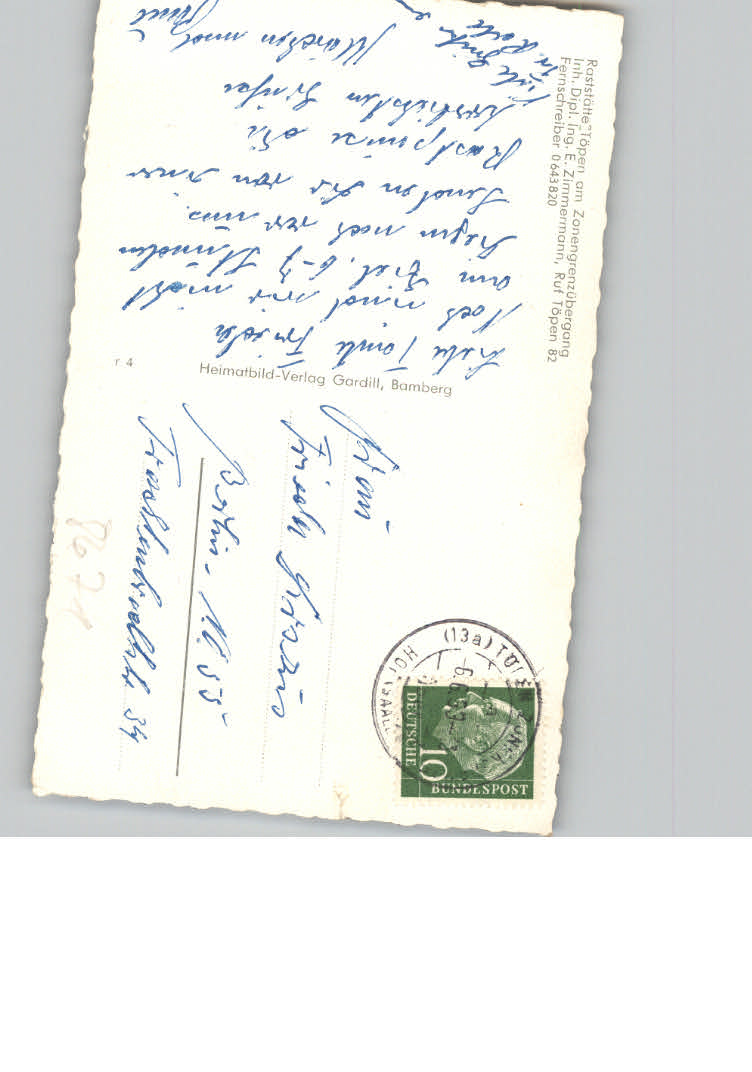 Raststätte Töpen am Zonengrenzübergang
Inh. Dipl. Ing. E. Zimmermann, Ruf Töpen 82
Fernschreiber 0643820
Liebe Tante Frieda
Noch sind wir nicht
am Ziel, 6-7 Stunden
liegen noch vor uns.
Senden Dir von einer
Rastpause die
herzlichsten Grüße
und
Viele Grüße
r 4
Heimatbild-Verlag Gardill, Bamberg
Frau
Frieda
Berlin - NO 55
34
8671
(13a) TÖPEN
HOF
(SAALE)
DEUTSCHE
BUNDESPOST
10